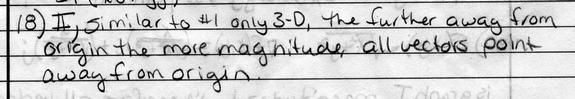 18) II, Similar to #1 only 3-D, the further away from
origin the more magnitude, all vectors point
away from origin.